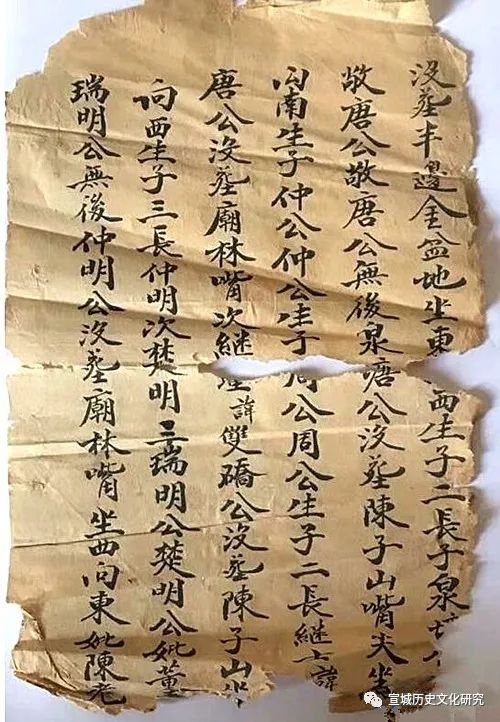 没塟半邊金盆地坐東西生子二長子泉
敬唐公敬唐公無後泉唐公没塟陳子山嘴尖坐
向南生子仲公仲公生子周公周公生子二長継士諱
唐公没塟廟林嘴次継諱雙礄公没塟陳子山坐
向西生子三長仲明次楚明三瑞明公楚明公妣董
瑞明公無後仲明公没塟廟林嘴坐西向東妣陳老
宣城历史文化研究